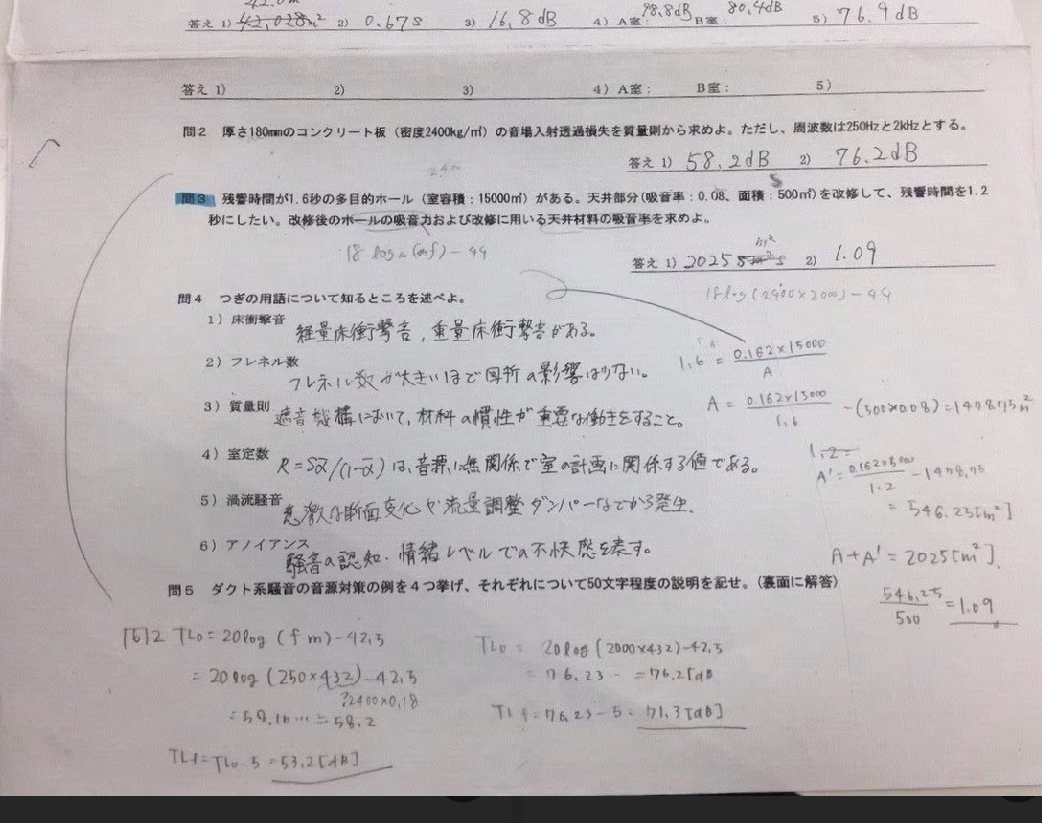 42.0m
答え 1) 42,028m² 2) 0.67s 3) 16,8dB 4) A室: 98,8dB B室: 80,4dB 5) 76.9dB
答え 1) 2) 3) 4) A室: B室: 5)
問2 厚さ180mmのコンクリート板(密度2400kg/㎥)の音場入射透過損失を質量則から求めよ。ただし、周波数は250Hzと2kHzとする。
2400
答え 1) 58.2dB 2) 76.2dB
問3 残響時間が1.6秒の多目的ホール(室容積:15000㎥)がある。天井部分(吸音率:0.08、面積:500㎡)を改修して、残響時間を1.2
秒にしたい。改修後のホールの吸音力および改修に用いる天井材料の吸音率を求めよ。
18 log (mf) - 44
答え 1) 2025 m² 2) 1.09
18log(2400×2000) - 44
問4 つぎの用語について知るところを述べよ。
1) 床衝撃音 軽量床衝撃音,重量床衝撃音がある。
2) フレネル数 フレネル数が大きいほど回折の影響は少ない。
3) 質量則 遮音機構において,材料の慣性が重要な働きをすること。
4) 室定数 R=Sᾱ/(1-ᾱ)は,音源に無関係で室の計画に関係する値である。
5) 渦流騒音 急激な断面変化や流量調整ダンパーなどから発生.
6) アノイアンス 騒音の認知・情緒レベルでの不快感を表す。
1,6 = 0.162×15000 / A
A = 0.162×15000 / 1.6 -(500×0.08)=1478.75m²
1.2=
A' = 0.162×15000 / 1.2 - 1478,75
= 546.25[m²]
A+A' = 2025[m²].
546,25 / 500 = 1.09
問5 ダクト系騒音の音源対策の例を4つ挙げ、それぞれについて50文字程度の説明を記せ。(裏面に解答)
問2 TL₀ = 20log (f m) - 42,5
= 20log (250×432) - 42,5
2400×0,18
= 58.16… = 58.2
TLf = TL₀ - 5 = 53.2[dB]
TL₀ = 20log (2000×432) - 42,5
= 76.23… = 76.2[dB
TLf = 76.23 - 5 = 71.3[dB]